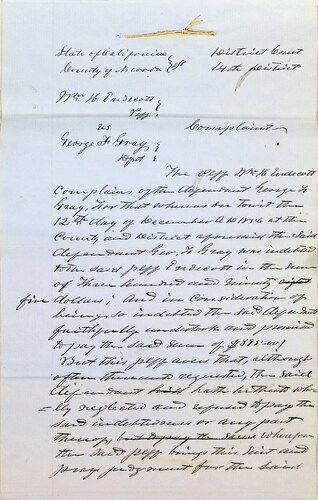 State of California } ss District Court
County of Nevada 14th District
Wm H Endecott
Plff
vs Complaint
George F Gray
Dft
The Plff Wm H Endecott
Complains of the defendant George F
Gray, For that whereas to wit the
12th day of December A.D. 1854 at the
County and District aforesaid the said
defendant Geo. F. Gray was indebted
to the said plff Endecott in the sum
of Three hundred and ninety eight
five dollars; And in consideration of
being so indebted the said defendant
faithfully undertook and promised
to pay the said sum of $395.00/
But this plff avers that, although
often requested, the said
defendant hath hitherto whol
=ly neglected and refused to pay the
said indebtedness or any part
thereof, but to pay the same Wherefore
the said plff brings this suit and
prays judgment for the said